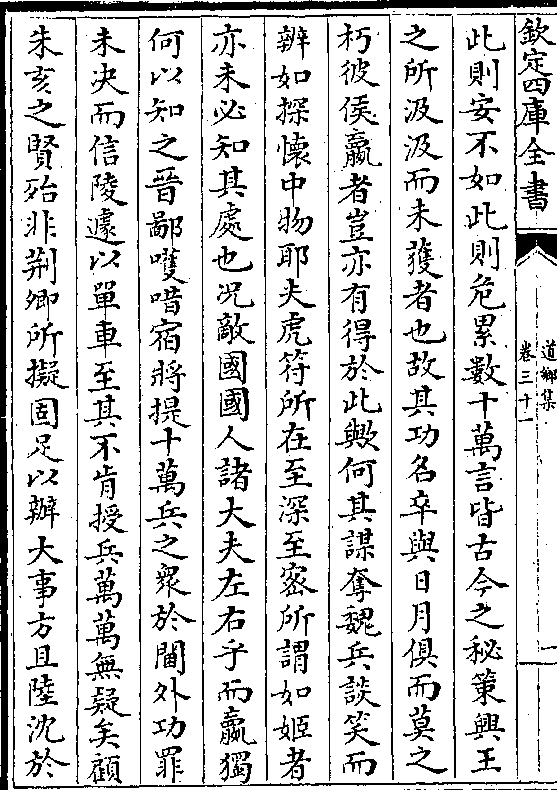 欽定四庫全書
道鄉集
卷三十一
此則安不如此則危累數十萬言皆古今之秘策興王
之所汲汲而未獲者也故其功名卒與日月俱而莫之
朽彼侯嬴者豈亦有得於此歟何其謀奪魏兵談笑而
辨如探懷中物耶夫虎符所在至深至宻所謂如姬者
亦未必知其處也况敵國國人諸大夫左右乎而嬴獨
何以知之晉鄙嚄唶宿將提十萬兵之衆於閫外功罪
未决而信陵遽以單車至其不肯授兵萬萬無疑矣顧
朱亥之賢殆非荆卿所擬固足以辦大事方且陸沈於